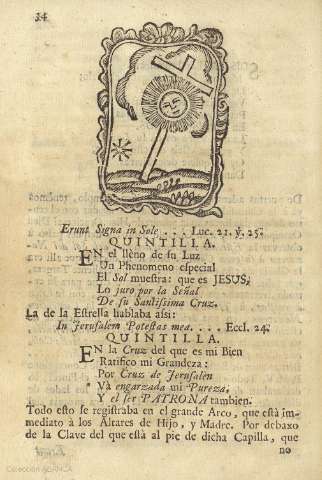 34
Erunt Signa in Sole . . . Luc. 21. ℣. 25.
QUINTILLA.
EN el lleno de su Luz
Un Phenomeno especial
El Sol muestra: que es JESUS;
Lo juro por la Señal
De su Santissima Cruz.
La de la Estrella hablaba assi:
In Jerusalem Potestas mea. . . . Eccl. 24.
QUINTILLA.
EN la Cruz del que es mi Bien
Ratifico mi Grandeza:
Por Cruz de Jerusalén
Và engarzada mi Pureza,
Y el ser PATRONA tambien.
Todo esto se registraba en el grande Arco, que està im-
mediato à los Altares de Hijo, y Madre. Por debaxo
de la Clave del que està al pie de dicha Capilla, que
no